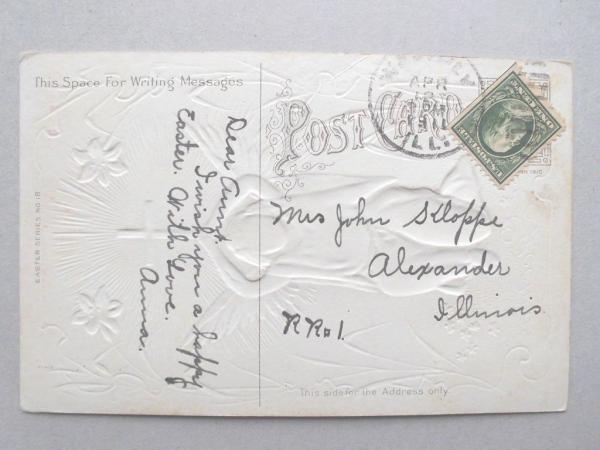 This Space For Writing Messages
EASTER SERIES NO. 18
Dear Aunt.
I wish you a happy
Easter. With Love.
Anna.
POST CARD
APR
ILL.
Mrs John Kloppe
Alexander
Illinois.
RR#1.
This side for the Address only